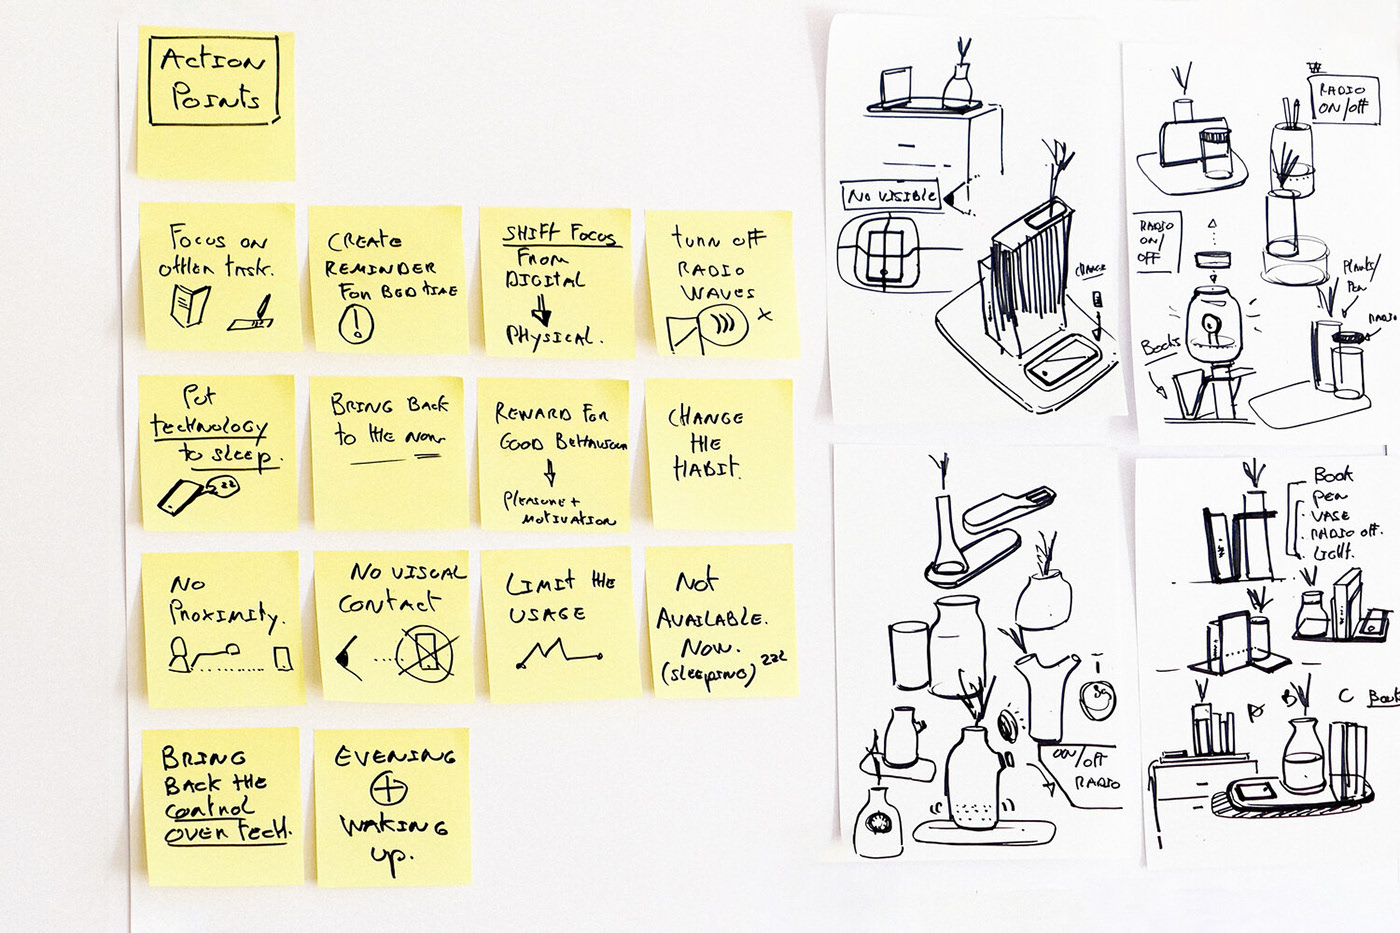 Action
Points
Focus on
other task.
CREATE
REMINDER
FOR BED TIME
!
SHIFT FOCUS
FROM
DIGITAL
PHYSICAL.
TURN OFF
RADIO
WAVES
x
Put
technology
to sleep.
zz
BRING BACK
to the now
REWARD FOR
GOOD BEHAVIOUR
PLEASURE +
MOTIVATION
CHANGE
THE
HABIT.
No
Proximity.
NO VISUAL
CONTACT
LIMIT THE
USAGE
Not
AVAILABLE.
Now.
(sleeping) zzz
BRING
BACK THE
control
OVER TECH.
EVENING
+
WAKING
up.
NO VISIBLE
CHARGE
RADIO
ON/OFF
RADIO
ON/
OFF
Books
Plants/
Pen
RADIO
ON/OFF
RADIO
Book
Pen
VASE
RADIO OFF.
Light.
B
C